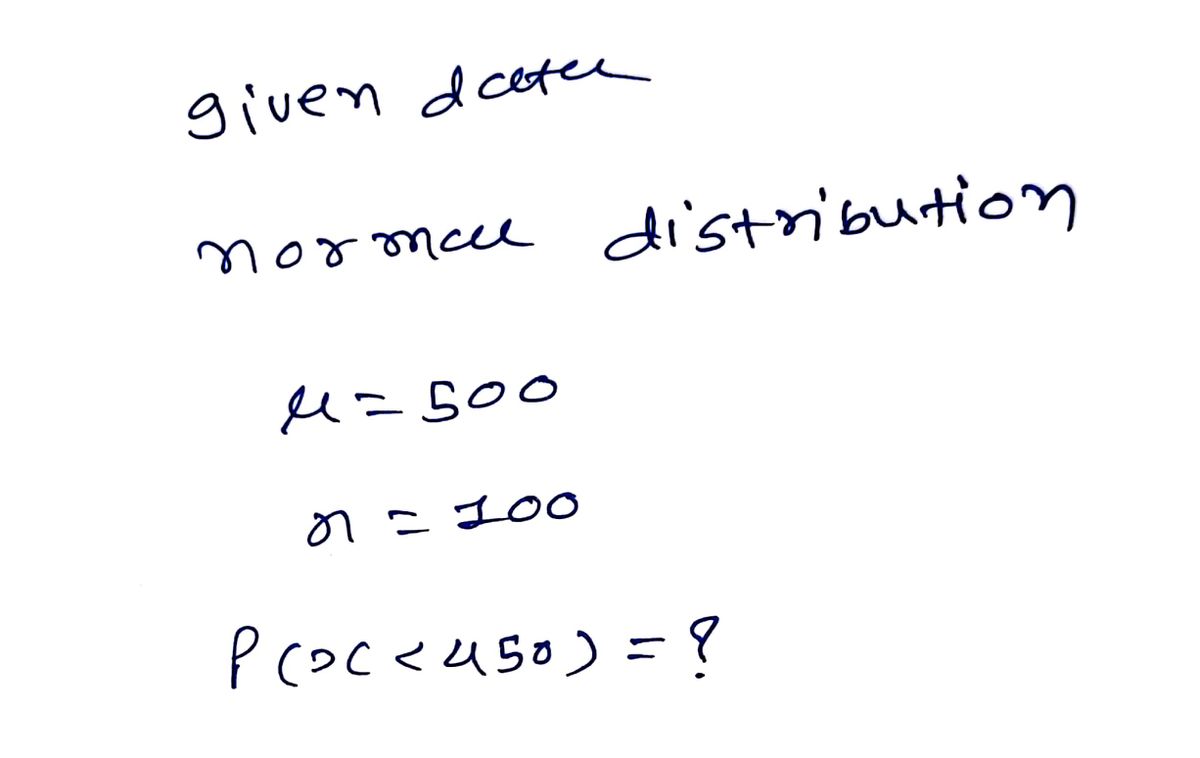 given data
normal distribution
μ = 500
n = 100
P(x < 450) = ?